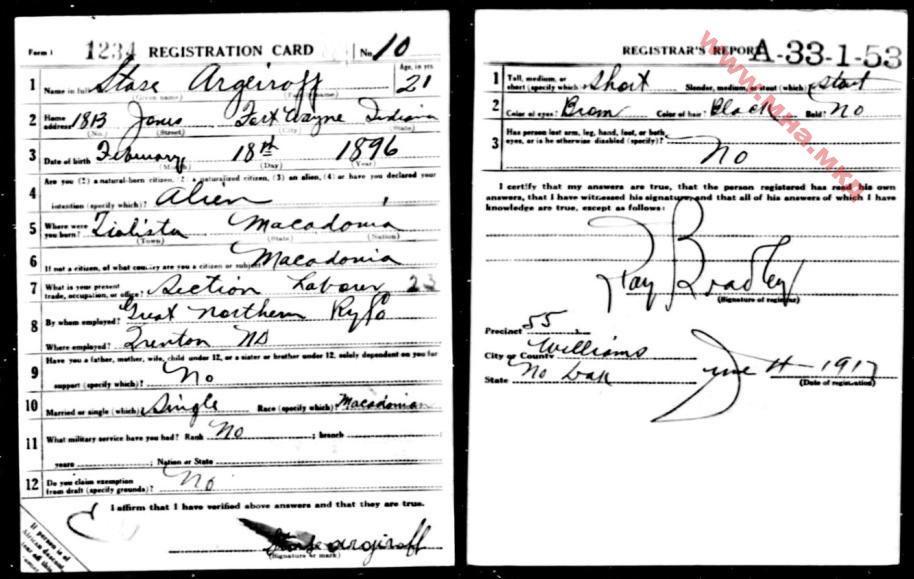 Form 1 1234 REGISTRATION CARD No. 10
1 Name in full Stase Argeiroff Age, in yrs. 21
(Given name) (Family name)
2 Home address 1813 Jones Fort Wayne Indiana
(No.) (Street) (City) (State)
3 Date of birth February 18th 1896
(Month) (Day) (Year)
4 Are you (1) a natural-born citizen, (2) a naturalized citizen, (3) an alien, (4) or have you declared your
intention (specify which)? Alien
5 Where were you born? Macadonia
(Town) (State) (Nation)
6 If not a citizen, of what country are you a citizen or subject? Macadonia
7 What is your present trade, occupation, or office? Section Labour 23
8 By whom employed? Great Northern Ry Co
Where employed? Trenton ND
9 Have you a father, mother, wife, child under 12, or a sister or brother under 12, solely dependent on you for
support (specify which)? No
10 Married or single (which)? Single Race (specify which)? Macadonian
11 What military service have you had? Rank No ; branch
years ; Nation or State
12 Do you claim exemption from draft (specify grounds)? No
I affirm that I have verified above answers and that they are true.
Stase argiroff
(Signature or mark)
If person is of
African descent,
REGISTRAR'S REPORT A-33-1-53
1 Tall, medium, or short (specify which)? Short Slender, medium, or stout (which)? Stout
2 Color of eyes? Brown Color of hair? Black Bald? No
3 Has person lost arm, leg, hand, foot, or both eyes, or is he otherwise disabled (specify)?
No
I certify that my answers are true, that the person registered has read his own
answers, that I have witnessed his signature, and that all of his answers of which I have
knowledge are true, except as follows:
Ray Bradley
(Signature of registrar)
Precinct 55
City or County Williams
State No Dak June 4 1917
(Date of registration)
www.MHa.MKD